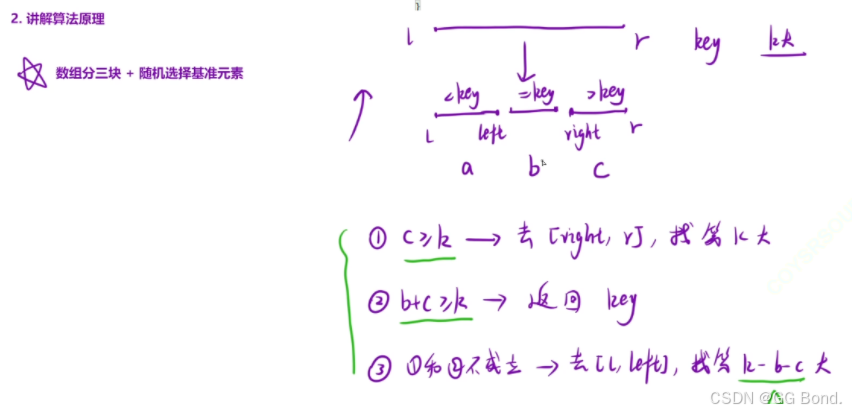 2. 讲解算法原理
数组分三块 + 随机选择基准元素
l r key k大
<key =key >key
l left right r
a b c
① c≥k → 去 [right, r], 找第 k 大
② b+c≥k → 返回 key
③ ①和②不成立 → 去 [l, left], 找第 k-b-c 大
CSDN @GG Bond.